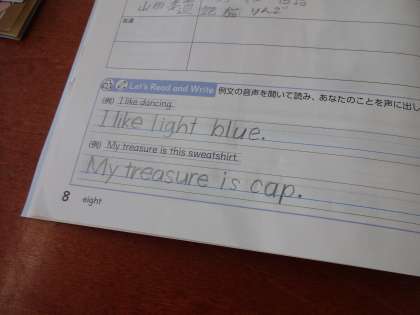 山田
りんご
Let's Read and Write 例文の音声を聞いて読み、あなたのことを声に出し
(例) I like dancing.
I like light blue.
(例) My treasure is this sweatshirt.
My treasure is cap.
8 eight